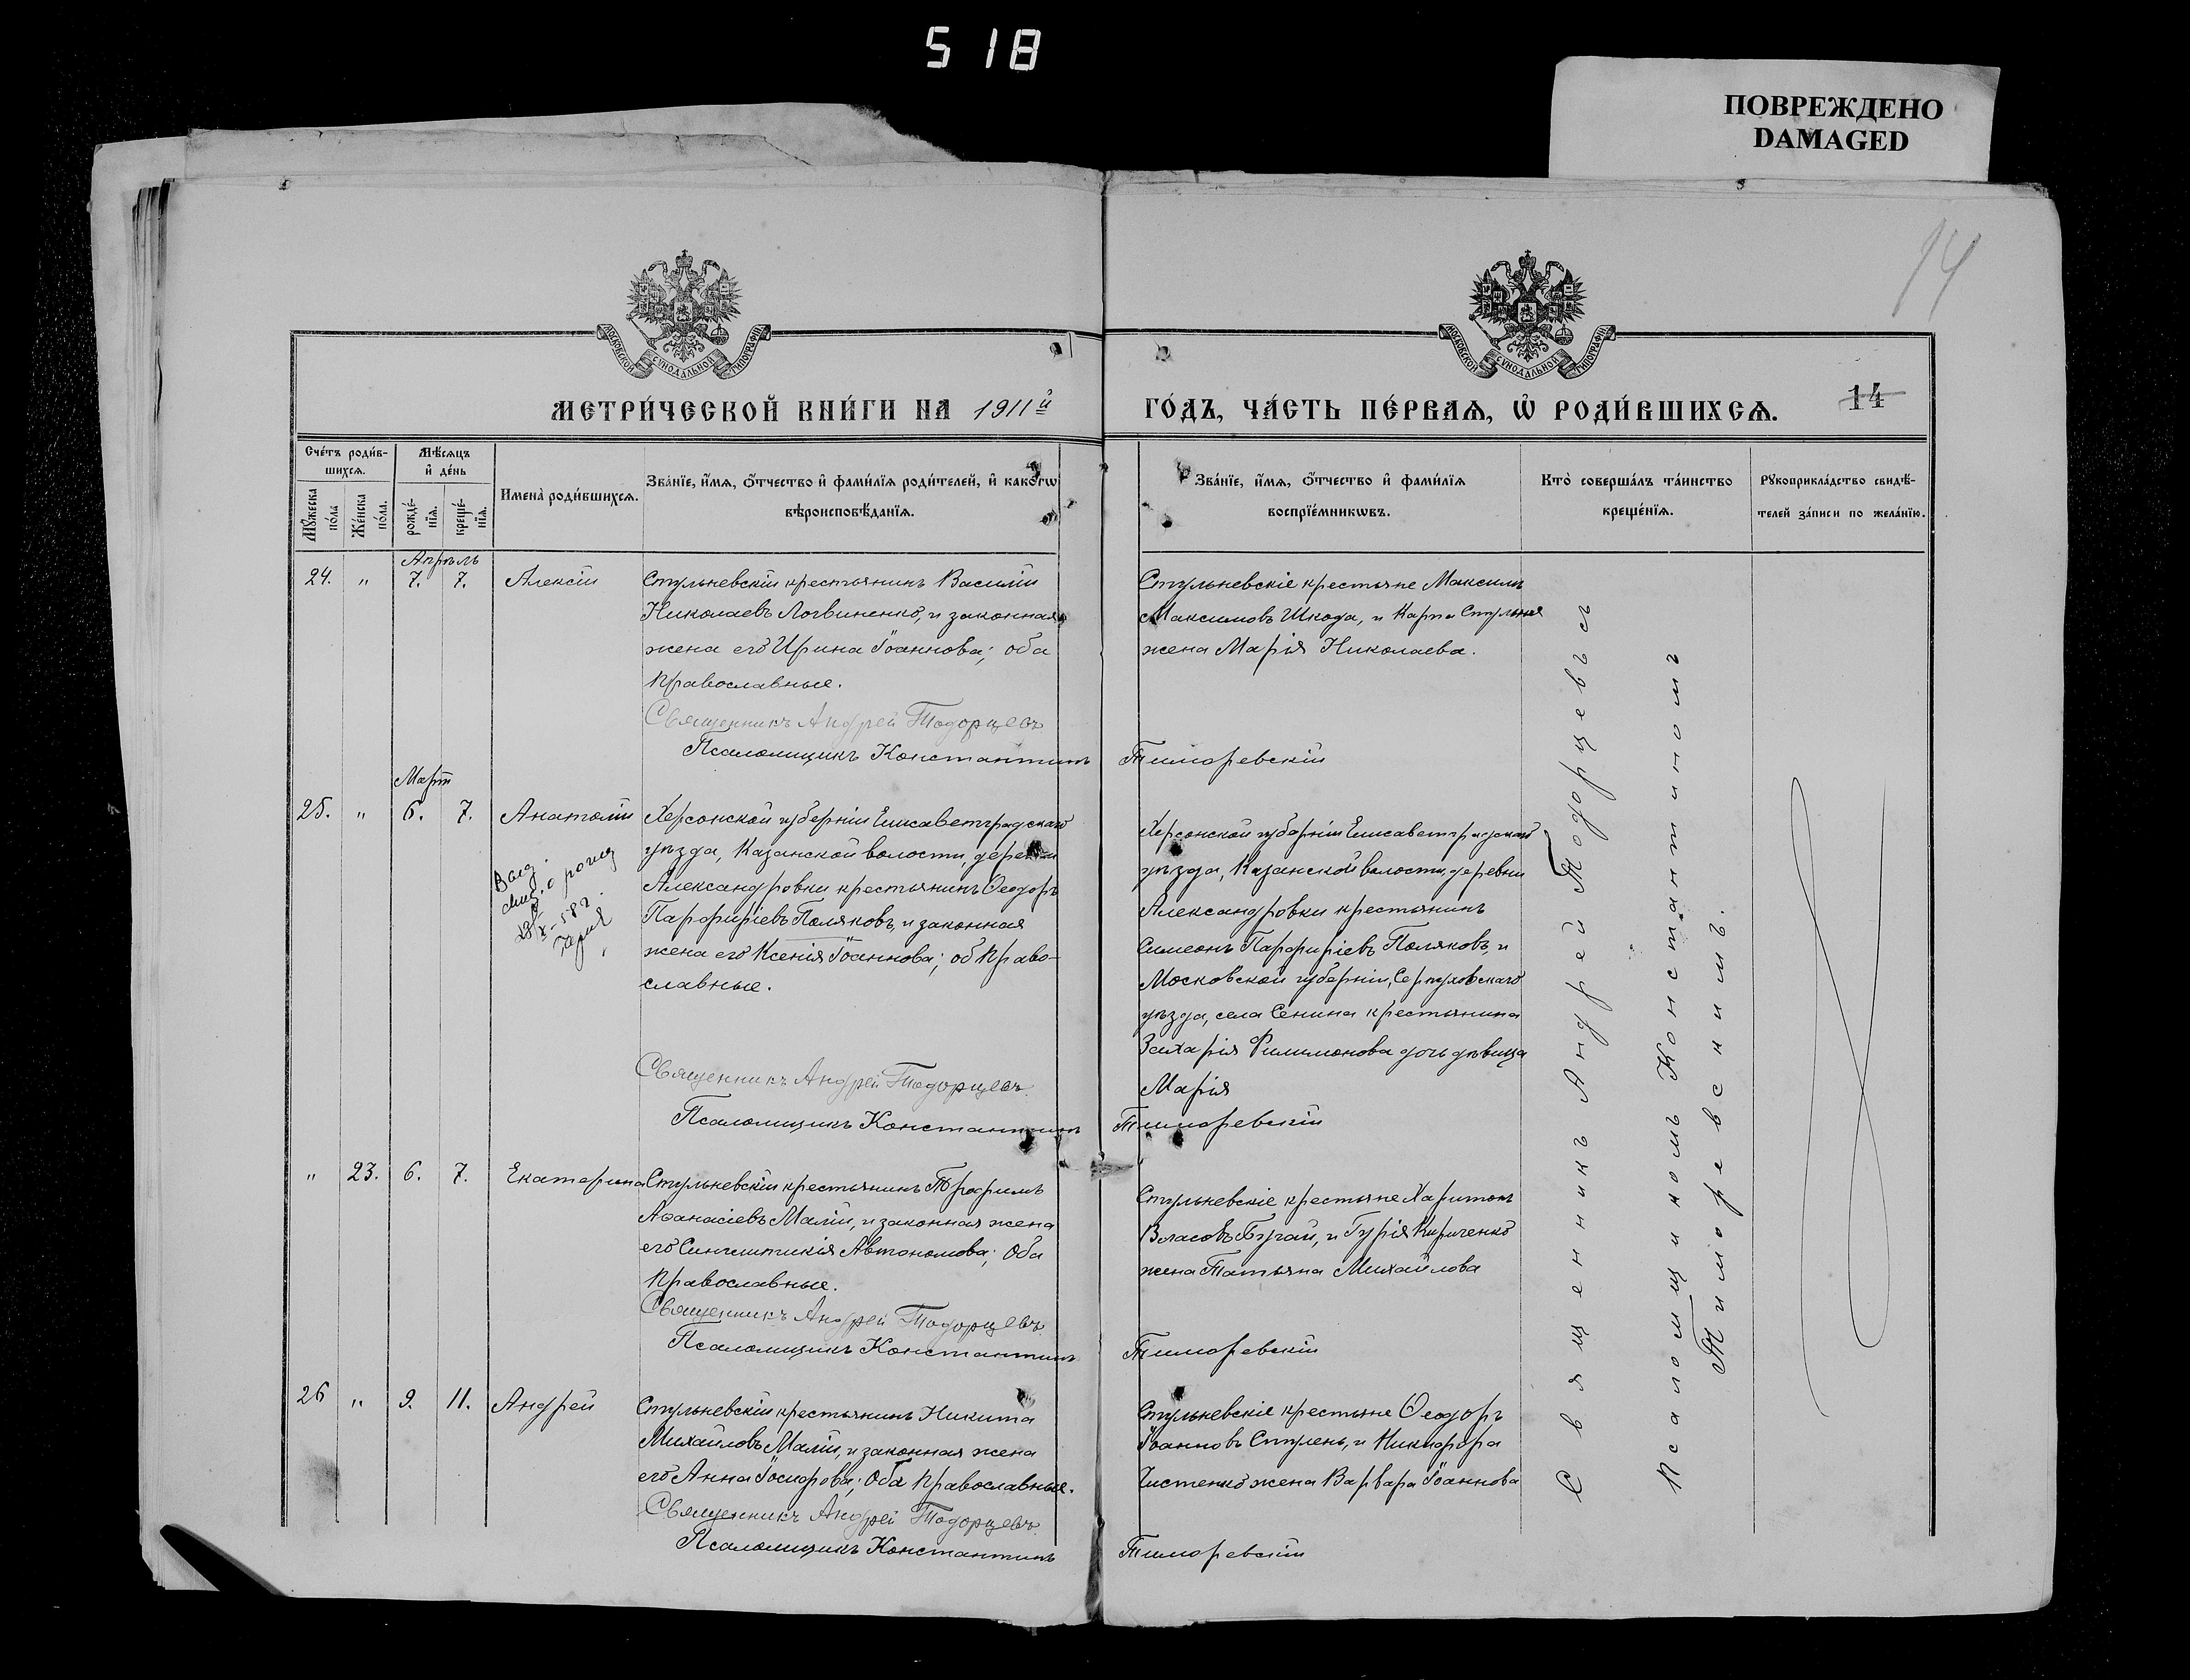 518
ПОВРЕЖДЕНО
DAMAGED
14
МОСКОВСКОЙ СѴНОДАЛЬНОЙ ТИПОГРАФІИ
МОСКОВСКОЙ СѴНОДАЛЬНОЙ ТИПОГРАФІИ
МЕТРИ́ЧЕСКОЙ КНИ́ГИ НА 1911й
ГО́ДЪ, ЧА́СТЬ ПЕ́РВАѦ, Ѡ҆ РОДИ́ВШИХСѦ.
14
Сче́тъ роди́в-
шихсѧ.
Мꙋ́жеска
по́ла
Же́нска
по́ла.
Мѣ́сѧцъ
и҆ де́нь
рожде́-
нїѧ.
креще́-
нїѧ.
Имена̀ роди́вшихсѧ.
Зва́нїе, и҆́мѧ, ѻ҆́тчество и҆ фами́лїѧ роди́телей, и҆ како́гѡ
вѣроисповѣ́данїѧ.
Зва́нїе, и҆́мѧ, ѻ҆́тчество и҆ фами́лїѧ
воспрїе́мникѡвъ.
Кто̀ соверша́лъ та́инство
креще́нїѧ.
Рꙋкоприкла́дство свидѣ́-
телей за́писи по жела́нїю.
Апрѣль
24. " 7. 7. Алексій
Стульневскій крестьянинъ Василій
Николаевъ Логвиненко, и законная
жена его Ирина Іоаннова; оба
православные.
Священникъ Андрей Тодорцевъ
Псаломщикъ Константинъ Тиморевскій
Стульневскіе крестьяне Максимъ
Максимовъ Шкода, и Карпа Стульня
жена Марія Николаева.
Март
25. " 6. 7. Анатолій
Выд.
28/X-58 г.
Херсонской губерніи Елисаветградскаго
уѣзда, Казанской волости, деревни
Александровки крестьянинъ Ѳеодоръ
Парфиріевъ Поляковъ, и законная
жена его Ксенія Іоаннова; оба право-
славные.
Священникъ Андрей Тодорцевъ
Псаломщикъ Константинъ Тиморевскій
Херсонской губерніи Елисаветградскаго
уѣзда, Казанской волости, деревни
Александровки крестьянинъ
Симеонъ Парфиріевъ Поляковъ, и
Московской губерніи, Серпуховскаго
уѣзда, села Сенина крестьянина
Захарія Филимонова дочь дѣвица
Марія
" 23. 6. 7. Екатерина
Стульневскій крестьянинъ Трофимъ
Аѳанасіевъ Малій, и законная жена
его Синклитикія Автономова; Оба
православные.
Священникъ Андрей Тодорцевъ
Псаломщикъ Константинъ Тиморевскій
Стульневскіе крестьяне Харитонъ
Власовъ Бугай, и Гурія Кириченко
жена Татьяна Михайлова
26 " 9. 11. Андрей
Стульневскій крестьянинъ Никита
Михайловъ Малій, и законная жена
его Анна Іосифова; Оба православные.
Священникъ Андрей Тодорцевъ
Псаломщикъ Константинъ Тиморевскій
Стульневскіе крестьяне Ѳеодоръ
Іоанновъ Стулень, и Никифора
Чистенко жена Варвара Іоаннова
Священникъ Андрей Тодорцевъ съ
Псаломщикомъ Константиномъ
Тиморевскимъ.